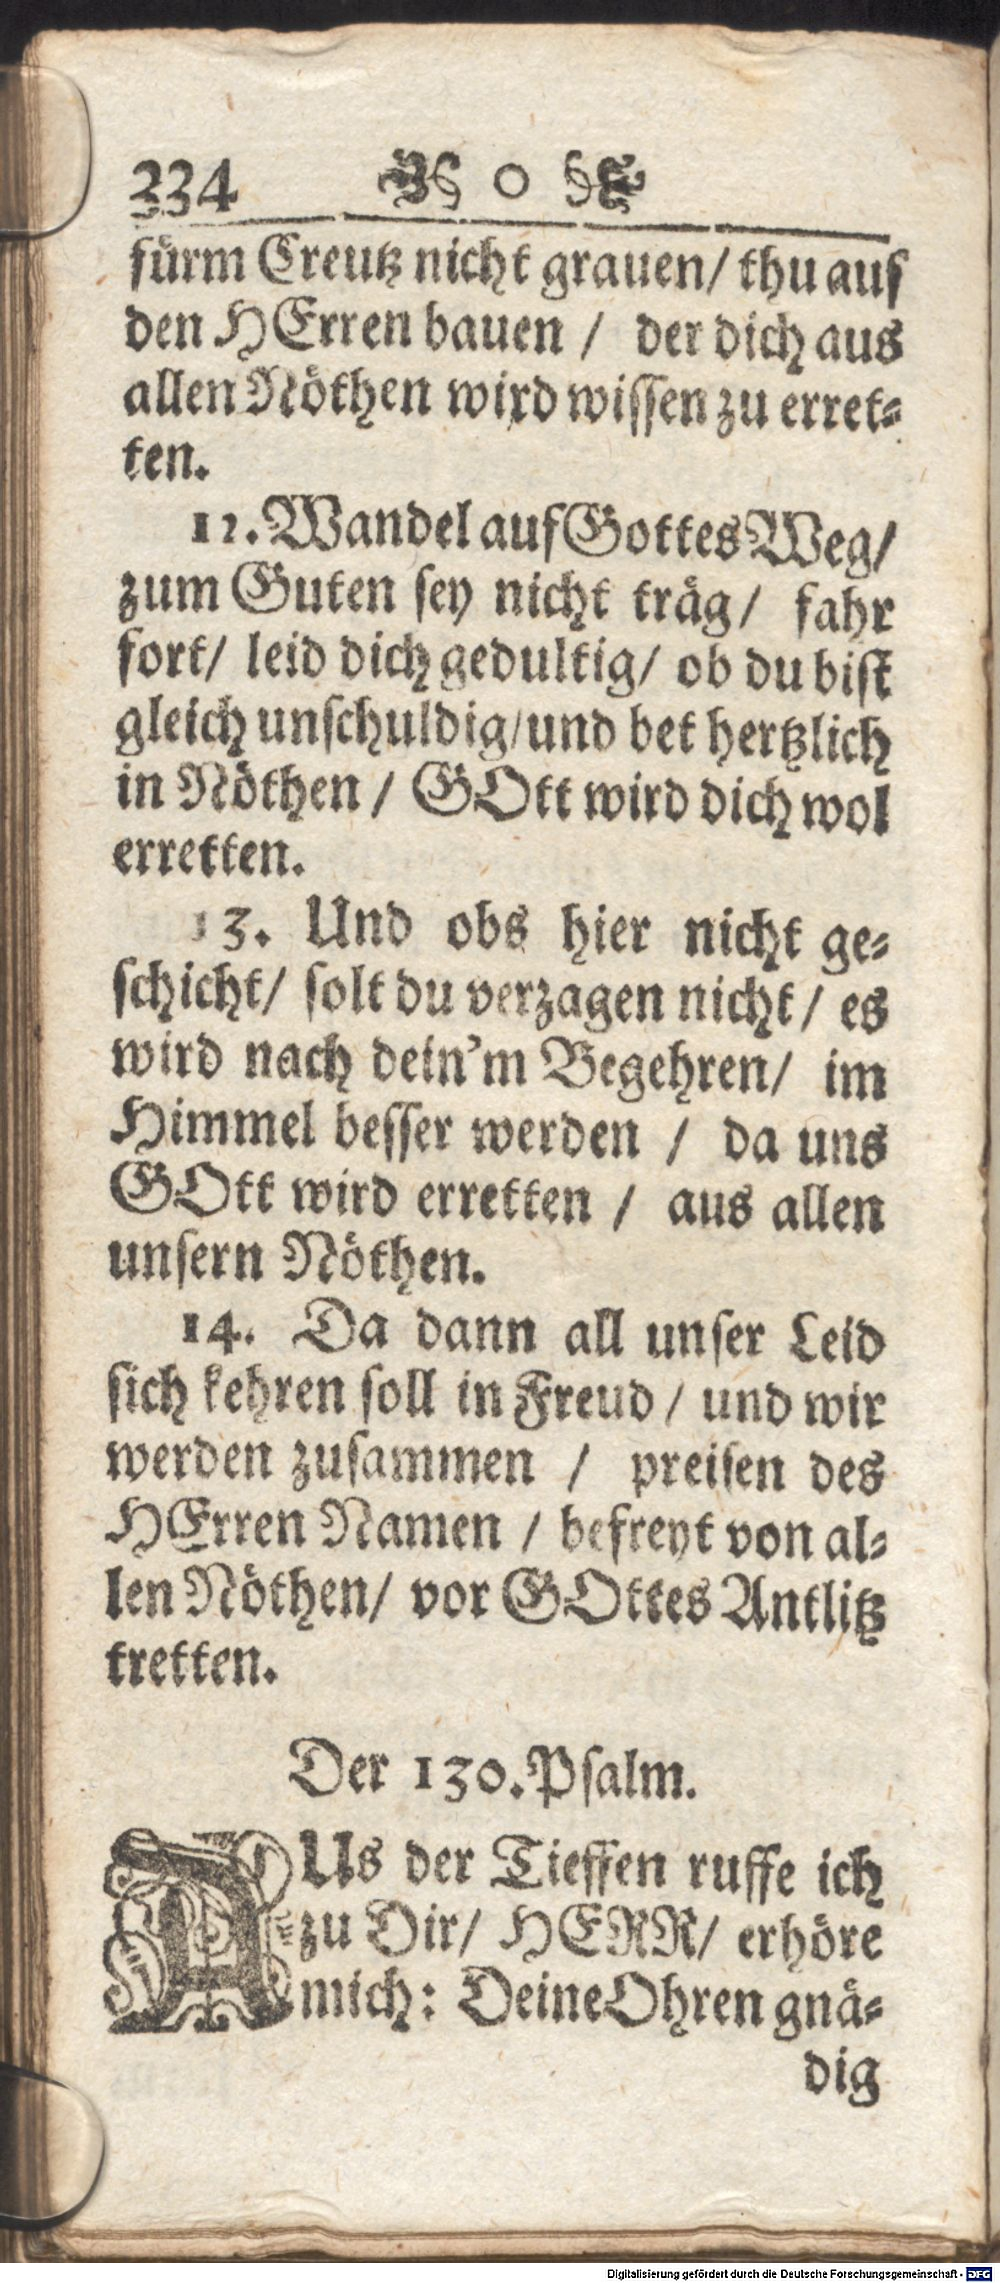 334 0
fürm Creutz nicht grauen/ thu auf
den HErren bauen / der dich aus
allen Nöthen wird wissen zu erret-
ten.
12. Wandel auf Gottes Weg/
zum Guten sey nicht träg/ fahr
fort/ leid dich gedultig/ ob du bist
gleich unschuldig/ und bet hertzlich
in Nöthen / GOtt wird dich wol
erretten.
13. Und obs hier nicht ge-
schicht/ solt du verzagen nicht/ es
wird nach dein'm Begehren/ im
Himmel besser werden / da uns
GOtt wird erretten / aus allen
unsern Nöthen.
14. Da dann all unser Leid
sich kehren soll in Freud / und wir
werden zusammen / preisen des
HErren Namen / befreyt von al-
len Nöthen/ vor GOttes Antlitz
tretten.
Der 130. Psalm.
AUs der Tieffen ruffe ich
zu Dir/ HERR/ erhöre
mich: Deine Ohren gnä-
dig
Digitalisierung gefördert durch die Deutsche Forschungsgemeinschaft - DFG